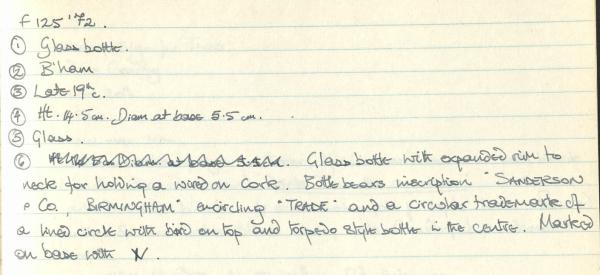 F125'72.
① Glass bottle.
② B'ham
③ Late 19thc.
④ Ht. 14.5cm. Diam at base 5.5cm.
⑤ Glass.
⑥ Ht. 14.5cm Diam at base 5.5cm. Glass bottle with expanded rim to
neck for holding a wired on cork. Bottle bears inscription "SANDERSON
& Co., BIRMINGHAM" encircling "TRADE" and a circular trademark of
a lined circle with bird on top and torpedo style bottle in the centre. Marked
on base with N.